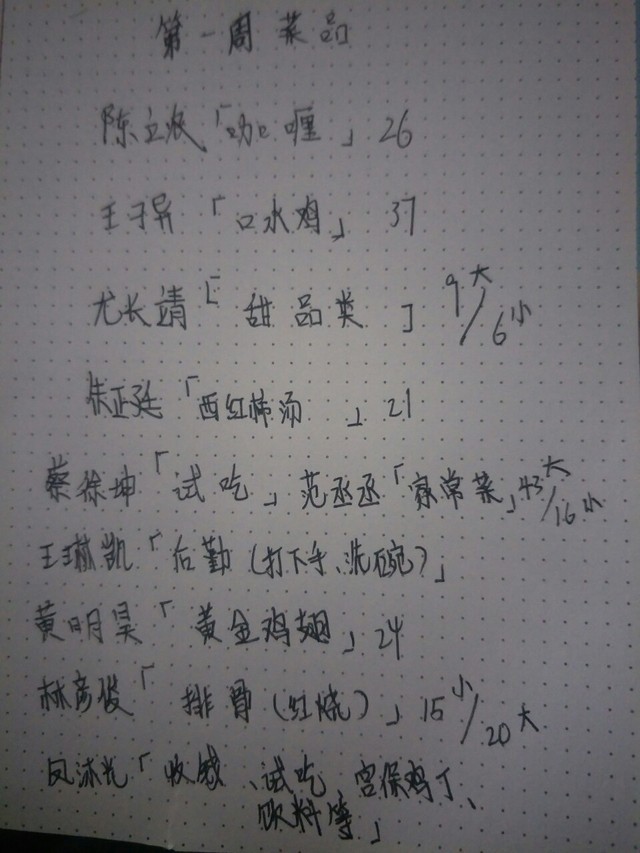 第一周菜品
陈立农「咖喱」26
王子异「口水鸡」37
尤长靖「甜品类」9大/6小
朱正廷「西红柿汤」21
蔡徐坤「试吃」范丞丞「家常菜」43大/16小
王琳凯「后勤(打下手、洗碗)」
黄明昊「黄金鸡翅」24
林彦俊「排骨(红烧)」15小/20大
凤沐光「收钱、试吃、宫保鸡丁、
饮料等」